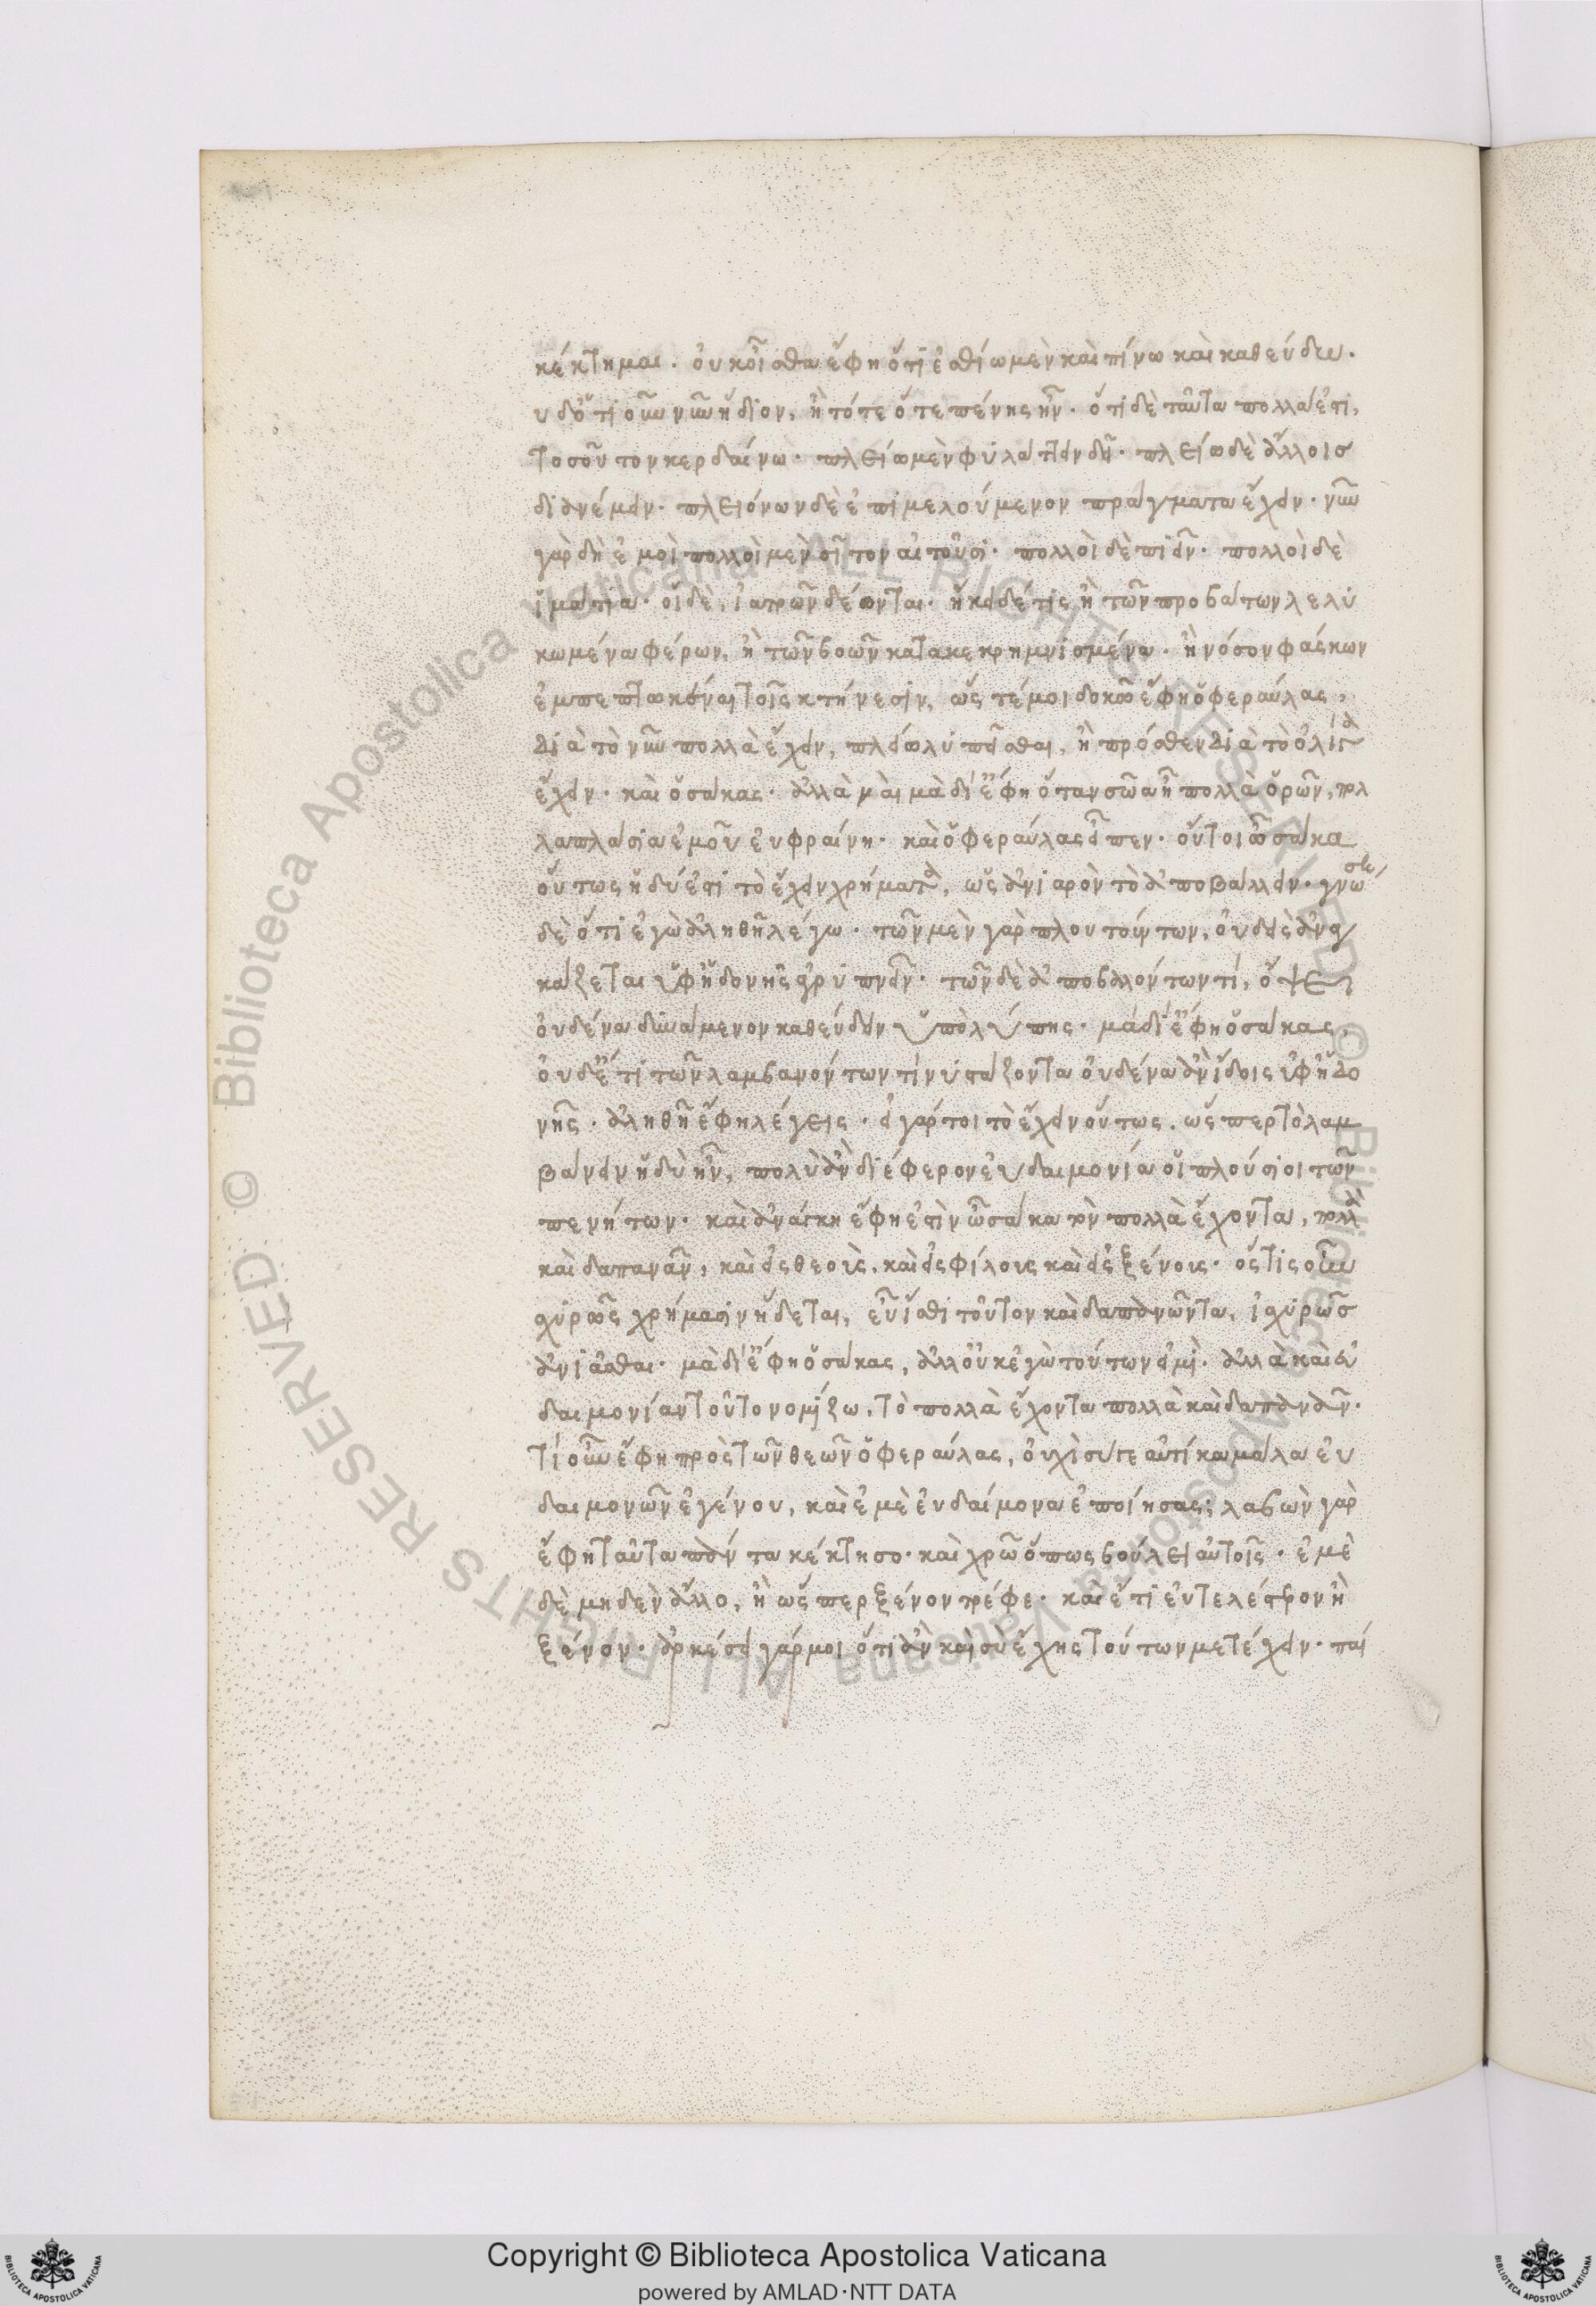 κέκτημαι. οὐκ οἶσθα ἔφη ὅτι ἐσθίω μὲν καὶ πίνω καὶ καθεύδω.
υδ' ὅτι οῦν νῦν ἥδιον, ἢ τότε ὅτε πένης ἦν. ὅτι δὲ ταῦτα πολλά ἐστι,
τοσοῦτον κερδαίνω. πλείω μὲν φυλάττειν δεῖ. πλείω δὲ ἄλλοις
διανέμειν. πλειόνων δὲ ἐπιμελούμενον πράγματα ἔχειν. νῦν
γὰρ δὴ ἐμοὶ πολλοὶ μὲν σῖτον αἰτοῦσι. πολλοὶ δὲ πιεῖν. πολλοὶ δὲ
ἱμάτια. οἱ δὲ, ἰατρῶν δέονται. ἥκει δέ τις ἢ τῶν προβάτων λελυ
κωμένα φέρων, ἢ τῶν βοῶν κατακεκρημνισμένα. ἢ νόσον φάσκων
ἐμπεπτωκέναι τοῖς κτήνεσιν, ὥστέ μοι δοκῶ ἔφη ὁ φεραύλας,
διὰ τὸ νῦν πολλὰ ἔχειν, πλείω λυπεῖσθαι, ἢ πρόσθεν διὰ τὸ ὀλίγα
ἔχειν. καὶ ὁ σάκας. ἀλλὰ ναὶ μὰ δί' ἔφη ὅταν σῶα ᾖ πολλὰ ὁρῶν, πολ
λαπλάσια ἐμοῦ εὐφραίνη. καὶ ὁ φεραύλας εἶπεν. οὔτοι ὦ σάκα
οὕτως ἡδύ ἐστι τὸ ἔχειν χρήματα, ὡς ἀνιαρὸν τὸ ἀποβάλλειν. γνώσει
δὲ ὅτι ἐγὼ ἀληθῆ λέγω. τῶν μὲν γὰρ πλουτούντων, οὐδεὶς ἀναγ
κάζεται ὑφ' ἡδονῆς ἀγρυπνεῖν. τῶν δὲ ἀποβαλλόντων τί, ὄψει
οὐδένα δυνάμενον καθεύδειν ὑπὸ λύπης. μὰ δί' ἔφη ὁ σάκας,
οὐδέ ἔτι τῶν λαμβανόντων τί νυστάζοντα οὐδένα ἂν ἴδοις ὑφ' ἡδο
νῆς. ἀληθῆ ἔφη λέγεις. εἰ γάρ τοι τὸ ἔχειν οὕτως, ὥσπερ τὸ λαμ
βάνειν ἡδὺ ἦν, πολὺ ἂν διέφερον εὐδαιμονία οἱ πλούσιοι τῶν
πενήτων. καὶ ἀνάγκη ἔφη ἐστὶν ὦ σάκα τὸν πολλὰ ἔχοντα, πολλὰ
καὶ δαπανᾶν, καὶ εἰς θεοὺς, καὶ εἰς φίλους καὶ εἰς ξένους. ὅστις οὖν ἰ
σχυρῶς χρήμασιν ἥδεται, εὖ ἴσθι τοῦτον καὶ δαπανῶντα, ἰσχυρῶς
ἀνιᾶσθαι. μὰ δί' ἔφη ὁ σάκας, ἀλλ' οὐκ ἐγὼ τούτων εἰμὶ. ἀλλὰ καὶ εὐ
δαιμονίαν τοῦτο νομίζω, τὸ πολλὰ ἔχοντα πολλὰ καὶ δαπανᾶν.
τί οὖν ἔφη πρὸς τῶν θεῶν ὁ φεραύλας, οὐχὶ σύ γε αὐτίκα μάλα εὐ
δαιμονῶν ἐγένου, καὶ ἐμὲ εὐδαίμονα ἐποίησας; λαβὼν γὰρ
ἔφη ταῦτα πάντα κέκτησο. καὶ χρῶ ὅπως βούλει αὐτοῖς. ἐμὲ
δὲ μηδὲν ἄλλο, ἢ ὥσπερ ξένον τρέφε. καὶ ἔτι εὐτελέστερον ἢ
ξένον. ἀρκέσει γάρ μοι ὅτι ἂν καὶ σὺ ἔχης τούτων μετέχειν. παί
Copyright © Biblioteca Apostolica Vaticana
powered by AMLAD·NTT DATA